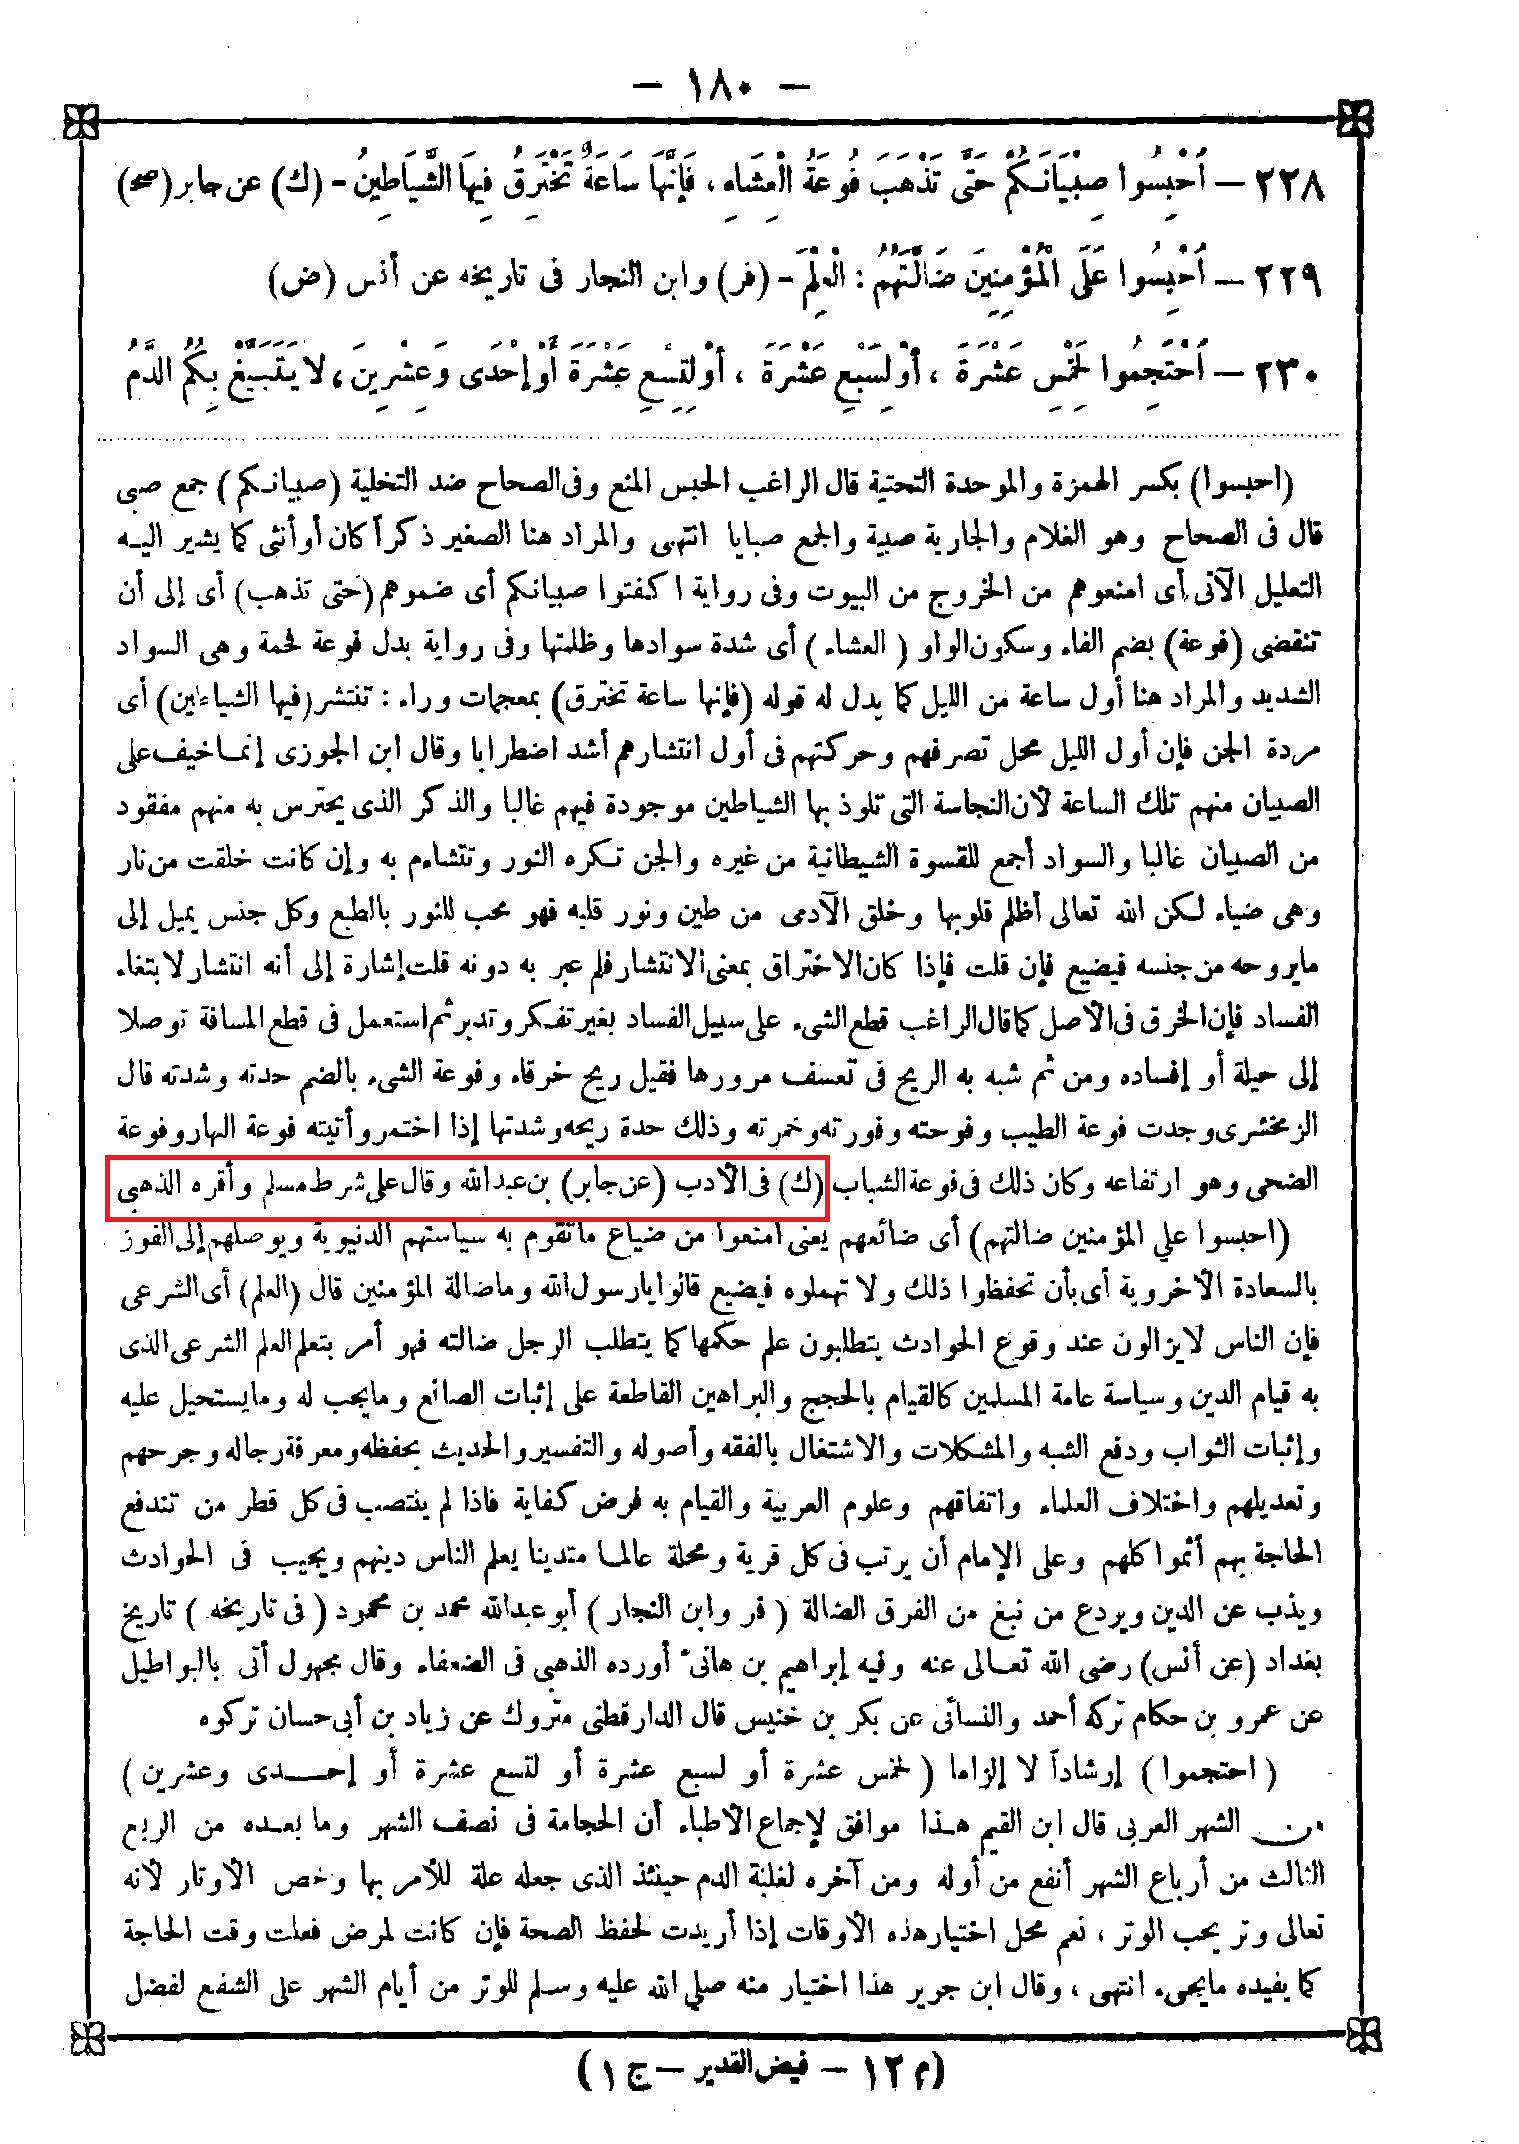 — ١٨٠ —
٢٢٨ — اَحْبِسُوا صِبْيَانَكُمْ حَتَّى تَذْهَبَ فُوعَةُ الْعِشَاءِ، فَإِنَّهَا سَاعَةٌ تَخْتَرِقُ فِيهَا الشَّيَاطِينُ - (ك) عن جابر (صح)
٢٢٩ — اُحْبِسُوا عَلَى الْمُؤْمِنِينَ ضَالَّتَهُمْ: الْعِلْمَ - (فر) وابن النجار فى تاريخه عن أنس (ض)
٢٣٠ — اَحْتَجِمُوا لِخَمْسِ عَشْرَةَ، أَوْ لِسَبْعِ عَشْرَةَ، أَوْ لِتِسْعِ عَشْرَةَ أَوْ إِحْدَى وَعِشْرِينَ، لَا يَتَبَيَّغْ بِكُمُ الدَّمُ
(احبسوا) بكسر الهمزة والموحدة التحتية قال الراغب الحبس المنع وفى الصحاح ضد التخلية (صبيانكم) جمع صبى
قال فى الصحاح وهو الغلام والجارية صبية والجمع صبايا انتهى والمراد هنا الصغير ذكراً كان أو أنثى كما يشير اليه
التعليل الآتى أى امنعوهم من الخروج من البيوت وفى رواية اكفتوا صبيانكم أى ضموهم (حتى تذهب) أى إلى أن
تنقضى (فوعة) بضم الفاء وسكون الواو (العشاء) أى شدة سوادها وظلمتها وفى رواية بدل فوعة فحمة وهى السواد
الشديد والمراد هنا أول ساعة من الليل كما يدل له قوله (فإنها ساعة تخترق) بمعجمات وراء: تنتشر (فيها الشياطين) أى
مردة الجن فإن أول الليل محل تصرفهم وحركتهم فى أول انتشارهم أشد اضطرابا وقال ابن الجوزى إنما خيف على
الصبيان منهم تلك الساعة لأن النجاسة التى تلوذ بها الشياطين موجودة فيهم غالبا والذكر الذى يحترس به منهم مفقود
من الصبيان غالبا والسواد أجمع للقسوة الشيطانية من غيره والجن تكره النور وتتشاءم به وإن كانت خلقت من نار
وهى ضياء لكن الله تعالى أظلم قلوبها وخلق الآدمى من طين ونور قلبه فهو محب للنور بالطبع وكل جنس يميل إلى
مايروحه من جنسه فيضيع فإن قلت فإذا كان الاختراق بمعنى الانتشار فلم عبر به دونه قلت إشارة إلى أنه انتشار لابتغاء
الفساد فإن الخرق فى الأصل كما قال الراغب قطع الشىء على سبيل الفساد بغير تفكر وتدبر ثم استعمل فى قطع المسافة توصلا
إلى حيلة أو إفساده ومن ثم شبه به الريح فى تعسف مرورها فقيل ريح خرقاء وفوعة الشىء بالضم حدته وشدته قال
الزمخشرى وجدت فوعة الطيب وفوحته وفورته وخمرته وذلك حدة ريحه وشدتها إذا اختمر وأتيته فوعة النهار وفوعة
الضحى وهو ارتفاعه وكان ذلك فى فوعة الشباب (ك) فى الأدب (عن جابر) بن عبد الله وقال على شرط مسلم وأقره الذهبى
(احبسوا على المؤمنين ضالتهم) أى ضائعهم يعنى امنعوا من ضياع ماتقوم به سياستهم الدنيوية ويوصلهم إلى الفوز
بالسعادة الأخروية أى بأن تحفظوا ذلك ولا تهملوه فيضيع قالوا يارسول الله وماضالة المؤمنين قال (العلم) أى الشرعى
فإن الناس لايزالون عند وقوع الحوادث يتطلبون علم حكمها كما يتطلب الرجل ضالته فهو أمر بتعلم العلم الشرعى الذى
به قيام الدين وسياسة عامة المسلمين كالقيام بالحجج والبراهين القاطعة على إثبات الصانع ومايجب له ومايستحيل عليه
وإثبات الثواب ودفع الشبه والمشكلات والاشتغال بالفقه وأصوله والتفسير والحديث بحفظه ومعرفة رجاله وجرحهم
وتعديلهم واختلاف العلماء واتفاقهم وعلوم العربية والقيام به فرض كفاية فاذا لم ينتصب فى كل قطر من تندفع
الحاجة بهم أثموا كلهم وعلى الإمام أن يرتب فى كل قرية ومحلة عالما متدينا يعلم الناس دينهم ويجيب فى الحوادث
ويذب عن الدين ويردع من نبغ من الفرق الضالة (فر وابن النجار) أبو عبد الله محمد بن محمود (فى تاريخه) تاريخ
بغداد (عن أنس) رضى الله تعالى عنه وفيه إبراهيم بن هانئ أورده الذهبى فى الضعفاء وقال مجهول أتى بالبواطيل
عن عمرو بن حكام تركه أحمد والنسائى عن بكر بن خنيس قال الدارقطنى متروك عن زياد بن أبى حسان تركوه
(احتجموا) إرشاداً لا إلزاما (لخمس عشرة أو لسبع عشرة أو لتسع عشرة أو إحدى وعشرين)
من الشهر العربى قال ابن القيم هذا موافق لإجماع الأطباء أن الحجامة فى نصف الشهر وما بعده من الربع
الثالث من أرباع الشهر أنفع من أوله ومن آخره لغلبة الدم حينئذ الذى جعله علة للأمر بها وخص الأوتار لأنه
تعالى وتر يحب الوتر، نعم محل اختيار هذه الأوقات إذا أريدت لحفظ الصحة فإن كانت لمرض فعلت وقت الحاجة
كما يفيده مايجىء انتهى، وقال ابن جرير هذا اختيار منه صلى الله عليه وسلم للوتر من أيام الشهر على الشفع لفضل
(م ١٢ — فيض القدير — ج ١)